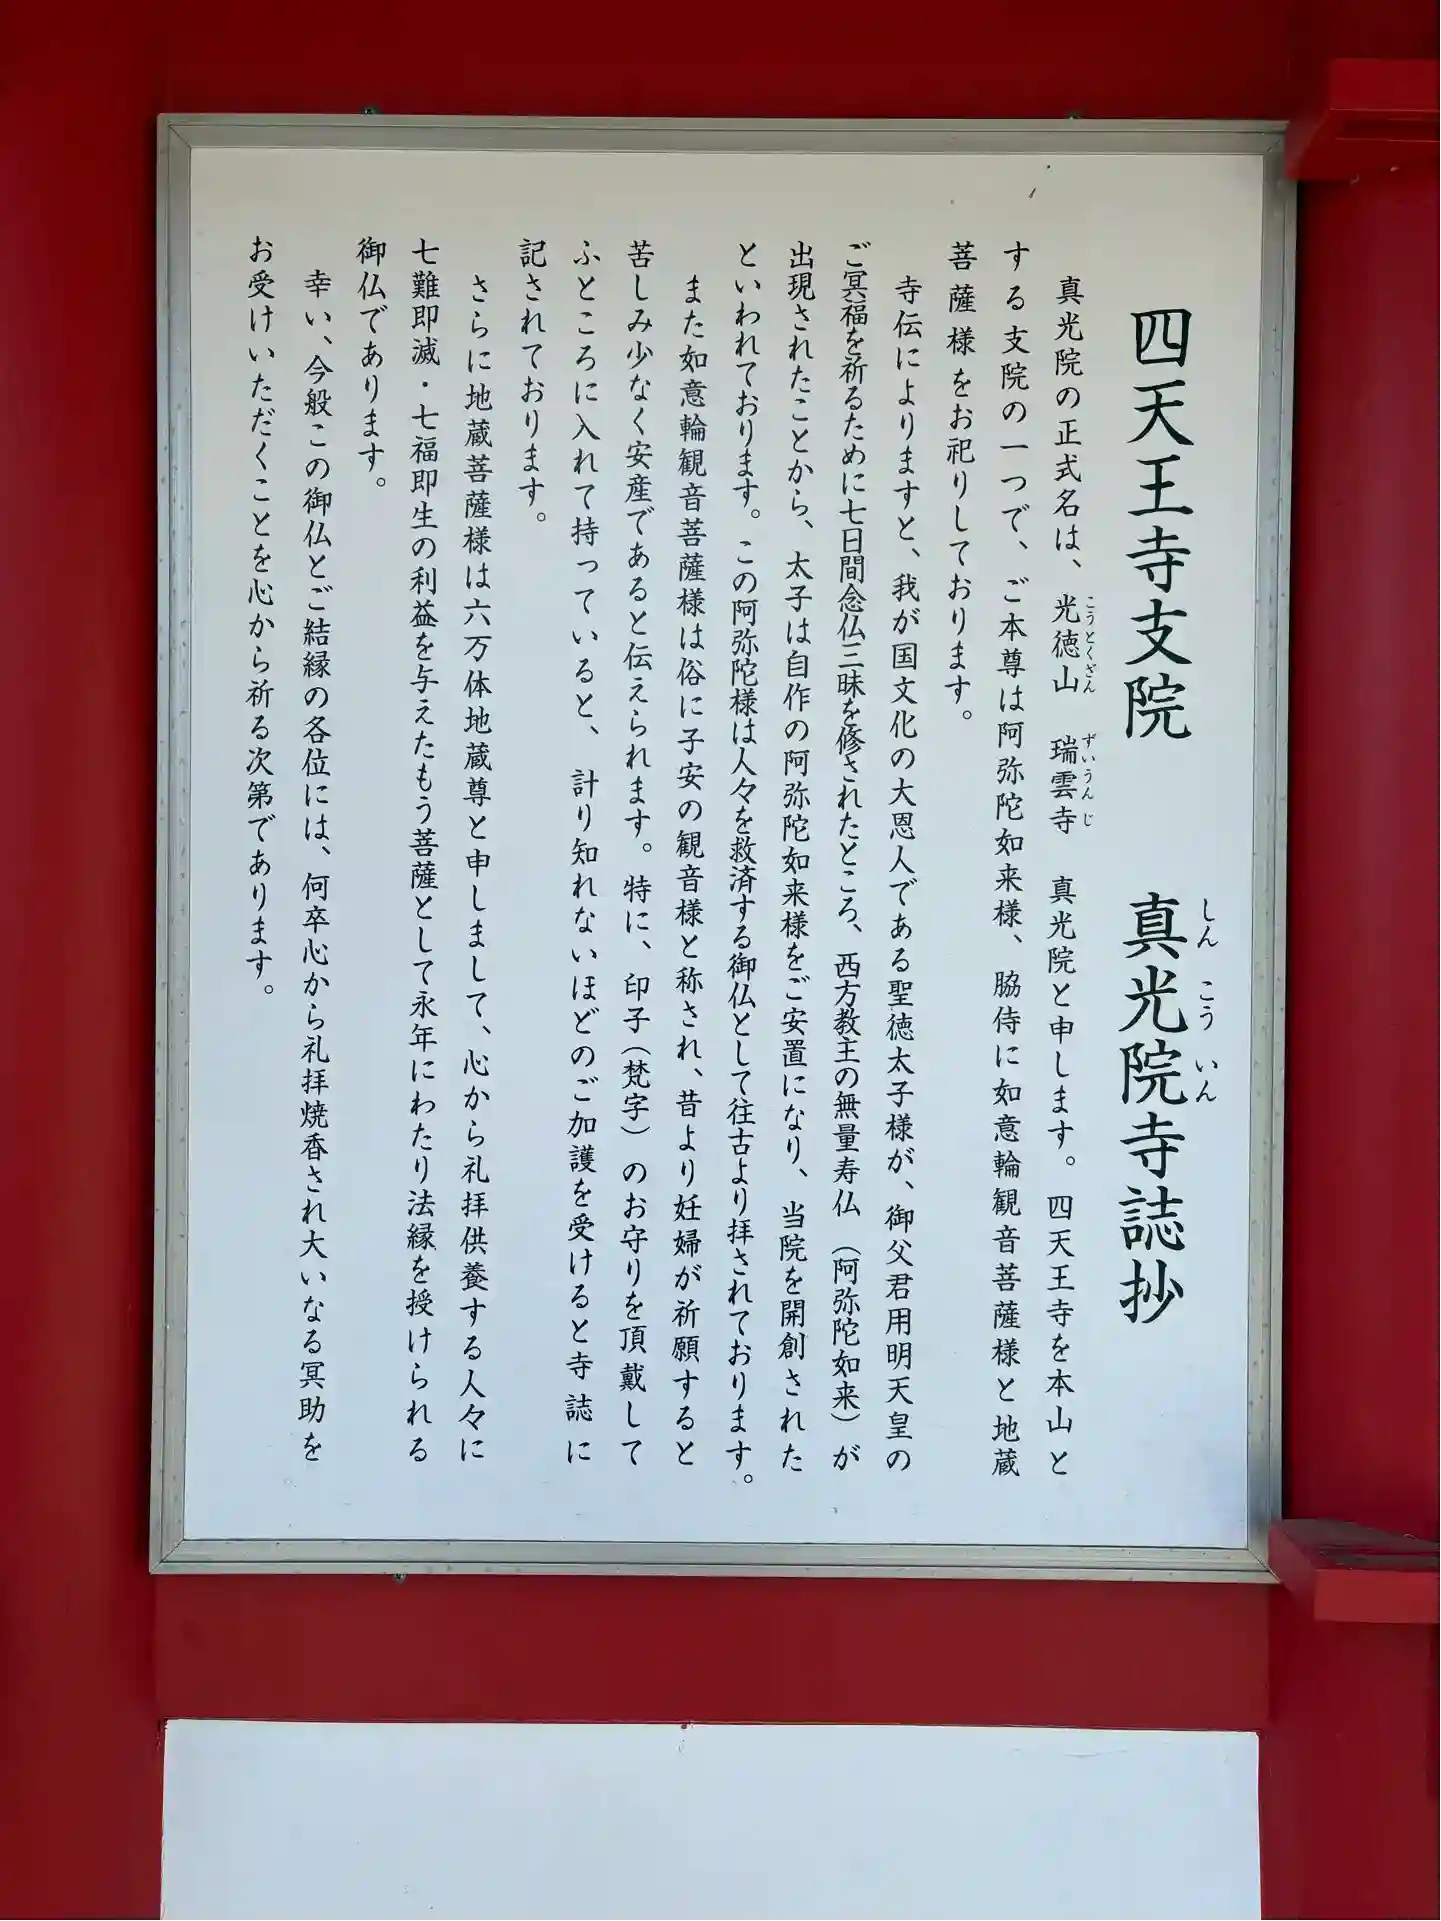 四天王寺支院　真光院寺誌抄
しんこういん
真光院の正式名は、光徳山　瑞雲寺　真光院と申します。四天王寺を本山と
こうとくざん　ずいうんじ
する支院の一つで、ご本尊は阿弥陀如来様、脇侍に如意輪観音菩薩様と地蔵
菩薩様をお祀りしております。
寺伝によりますと、我が国文化の大恩人である聖徳太子様が、御父君用明天皇の
ご冥福を祈るために七日間念仏三昧を修されたところ、西方教主の無量寿仏（阿弥陀如来）が
出現されたことから、太子は自作の阿弥陀如来様をご安置になり、当院を開創された
といわれております。この阿弥陀様は人々を救済する御仏として往古より拝されております。
また如意輪観音菩薩様は俗に子安の観音様と称され、昔より妊婦が祈願すると
苦しみ少なく安産であると伝えられます。特に、印子（梵字）のお守りを頂戴して
ふところに入れて持っていると、計り知れないほどのご加護を受けると寺誌に
記されております。
さらに地蔵菩薩様は六万体地蔵尊と申しまして、心から礼拝供養する人々に
七難即滅・七福即生の利益を与えたもう菩薩として永年にわたり法縁を授けられる
御仏であります。
幸い、今般この御仏とご結縁の各位には、何卒心から礼拝焼香され大いなる冥助を
お受けいただくことを心から祈る次第であります。